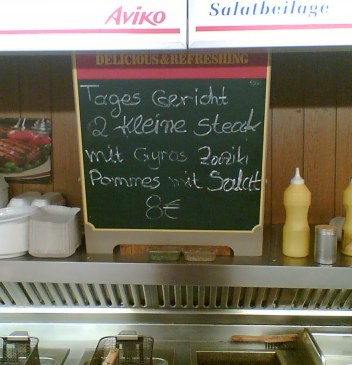 AVIKO
Salatbeilage
DELICIOUS & REFRESHING
Tages Gericht
2 kleine Steak
mit Gyros Zaziki
Pommes mit Salat
8€